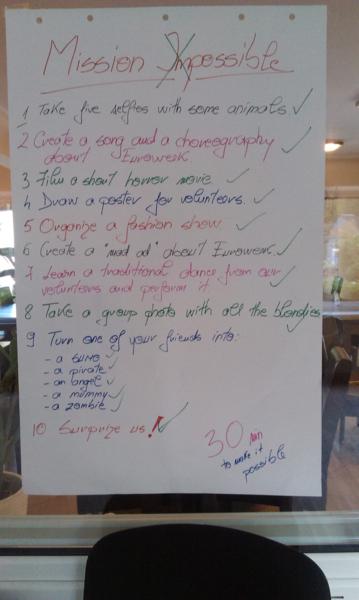 Mission Impossible
1 Take five selfies with some animals. ✓
2 Create a song and a choreography ✓
about Eurowerk.
3 Film a short horror movie. ✓
4 Draw a poster for volunteers. ✓
5 Organize a fashion show ✓
6 Create a "mad ad" about Eurowerk. ✓
7 Learn a traditional dance from our ✓
volunteers and perform it
8 Take a group photo with all the blondies ✓
9 Turn one of your friends into:
- a sumo ✓
- a pirate ✓
- an angel ✓
- a mummy ✓
- a zombie ✓
10 Surprize us! ✓
30 min
to make it
possible